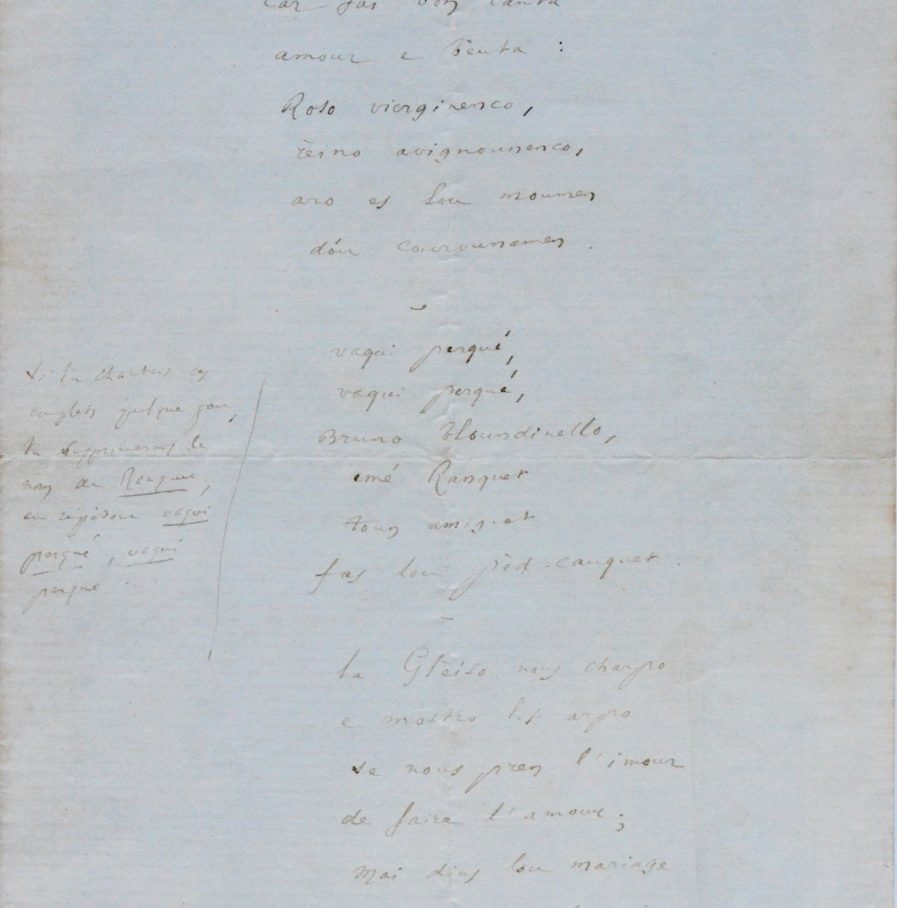 car fas bon canta
amour e bèuta :
Roso vierginenco,
rèino avignounenco,
aro es lou moumen
dóu courounamen.
vaqui perqué,
vaqui perqué,
Bruno Bloundinello,
emé Ranquet
toun amiguet
fas lou pèd-cauquet.
la Glèiso nous charpo
e mostro lis arpo
se nous pren l'imour
de faire l'amour ;
Mai dins lou mariage
Si tu chantais ces
couplets quelque jour,
tu supprimerais le
nom de Ranquet,
en répétant vaqui
perqué, vaqui
perqué